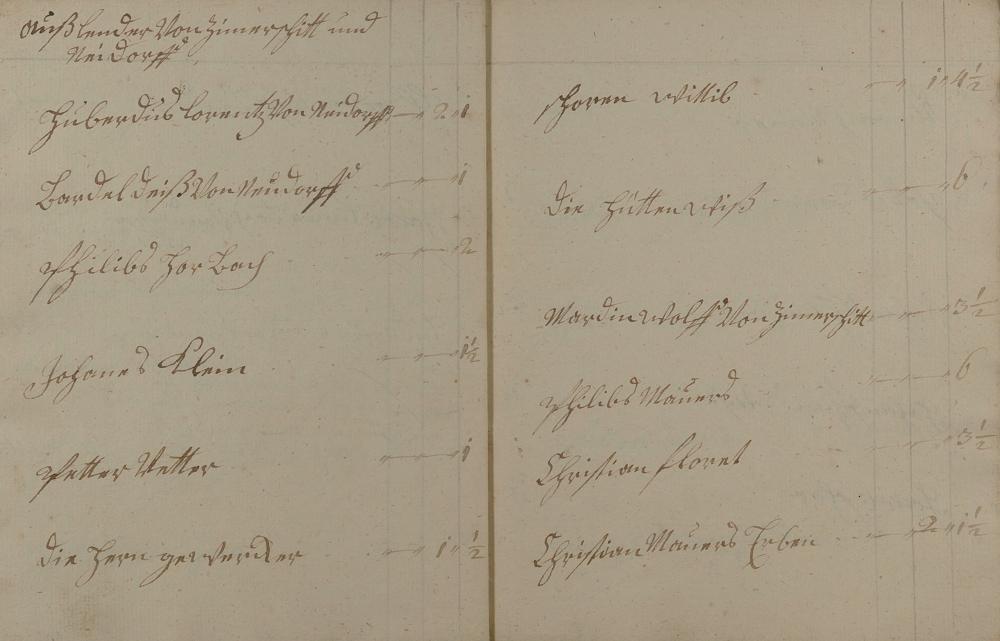 außlender Von Zimerschitt und
Neidorff
Huberdus Lorentz Von Neidorff — " 2 " 1
Bardel Deiß Von Neudorff " — " — " 1
Philibs Horbach " — " — " 2
Johanes Klein " — " — " 1½
Petter Vetter " — " — " 1
die Hern gewercker " — " 1 " ½
schoren wittib — " 1 " 4½
die Hütten wiß " — " — " 6
Mardin Wolff Von Zimerschitt — " — " 3½
Philibs Maurers " — " — " 6
Christian floret " — " — " 3½
Christian Maurers Erben — " 2 " 1½